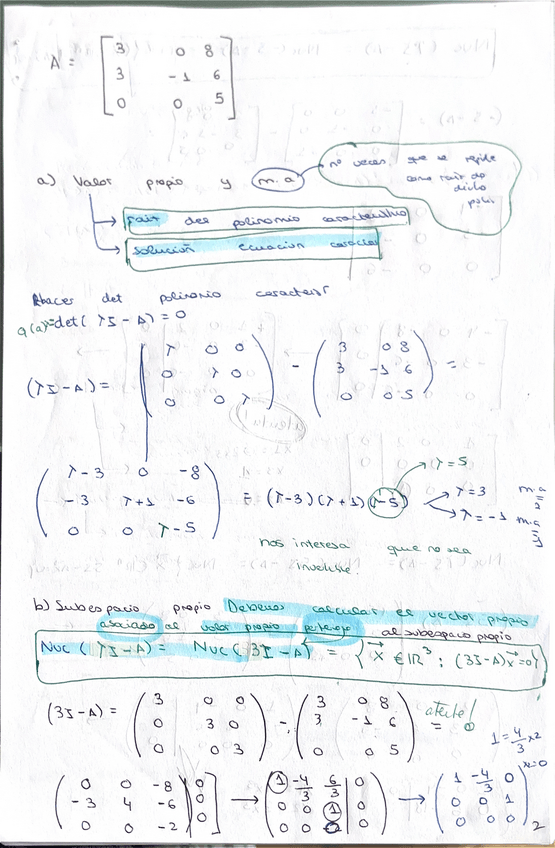 A = [ 3 0 8
3 -1 6
0 0 5 ]
a) Valor propio y m.a
nº veces que se repite
como raíz de
dicho
poli
raíz del polinomio característico
solución ecuación caracter
Hacer det polinomio caracterist
q(λ)=det(λI-A)=0
(λI-A) = ( λ 0 0
0 λ 0
0 0 λ ) - ( 3 0 8
3 -1 6
0 0 5 ) =
λ=5
( λ-3 0 -8
-3 λ+1 -6
0 0 λ-5 ) = (λ-3)(λ+1)(λ-5) λ=3 m.a = 2
λ=-1 m.a = 1
nos interesa que no sea
b) Subespacio propio Debemos calcular el vector propio
asociado al valor propio al subespacio propio
Nuc(λI-A) = Nuc(3I-A) = { x ∈ ℝ³ : (3I-A)x=0 }
(3I-A) = ( 3 0 0
0 3 0
0 0 3 ) - ( 3 0 8
3 -1 6
0 0 5 ) =
1=4/3 x2
x=0
( 0 0 -8 | 0
-3 4 -6 | 0
0 0 -2 | 0 ) → ( 1 -4/3 6/3 | 0
0 0 1 | 0
0 0 | 0 ) → ( 1 -4/3 0
0 0 1
0 0 0 ) 2